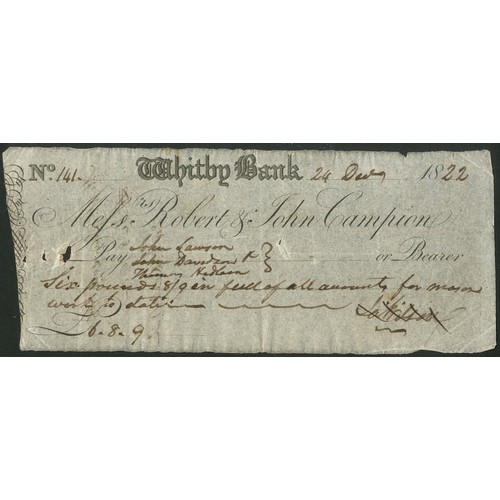 No. 141. Whitby Bank 24 Decr 1822
Messrs. Robert & John Campion
Pay John Lawson
John Dawson &
Thomas Hudson } or Bearer
Six pounds 8/9 in full of all accounts for mason
work to date
6.8.9.